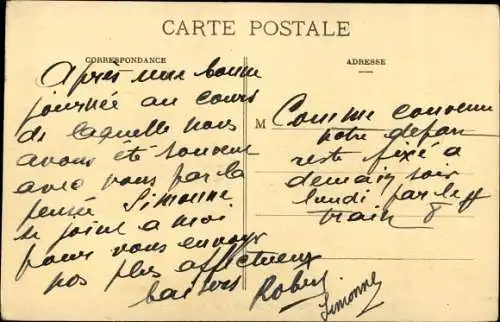 CARTE POSTALE
CORRESPONDANCE
ADRESSE
Après une bonne
journée au cours
de laquelle nous
avons été souvent
avec vous par la
pensée Simonne
se joint a moi
pour vous envoyer
nos plus affectueux
baisers
Robert
Simonne
M Comme convenu
notre départ
reste fixé a
demain soir
lundi par le
train 8